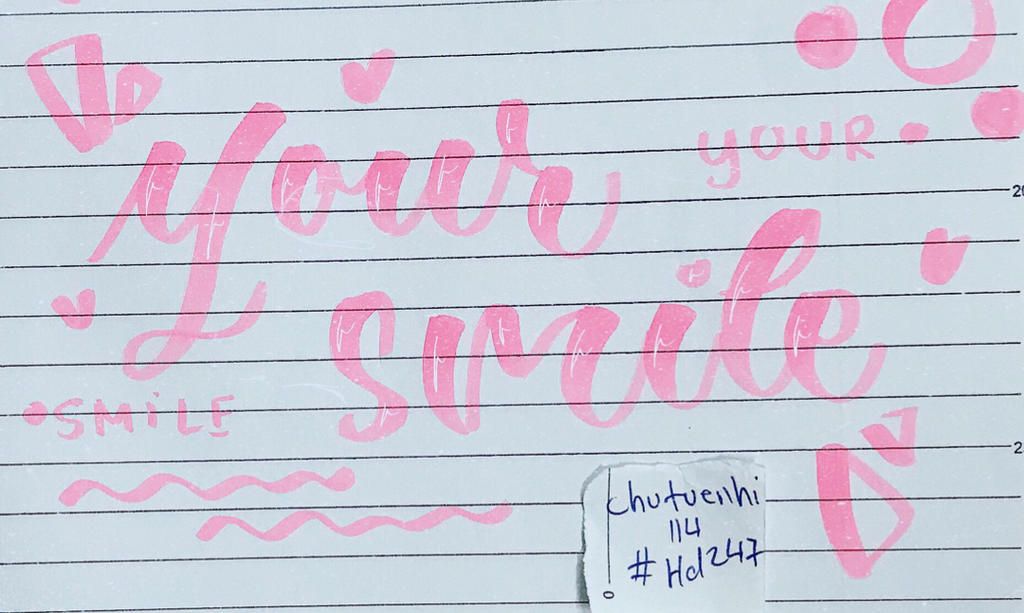 your
YOUR
smile
SMiLE
chutuenhi
114
#Hd247